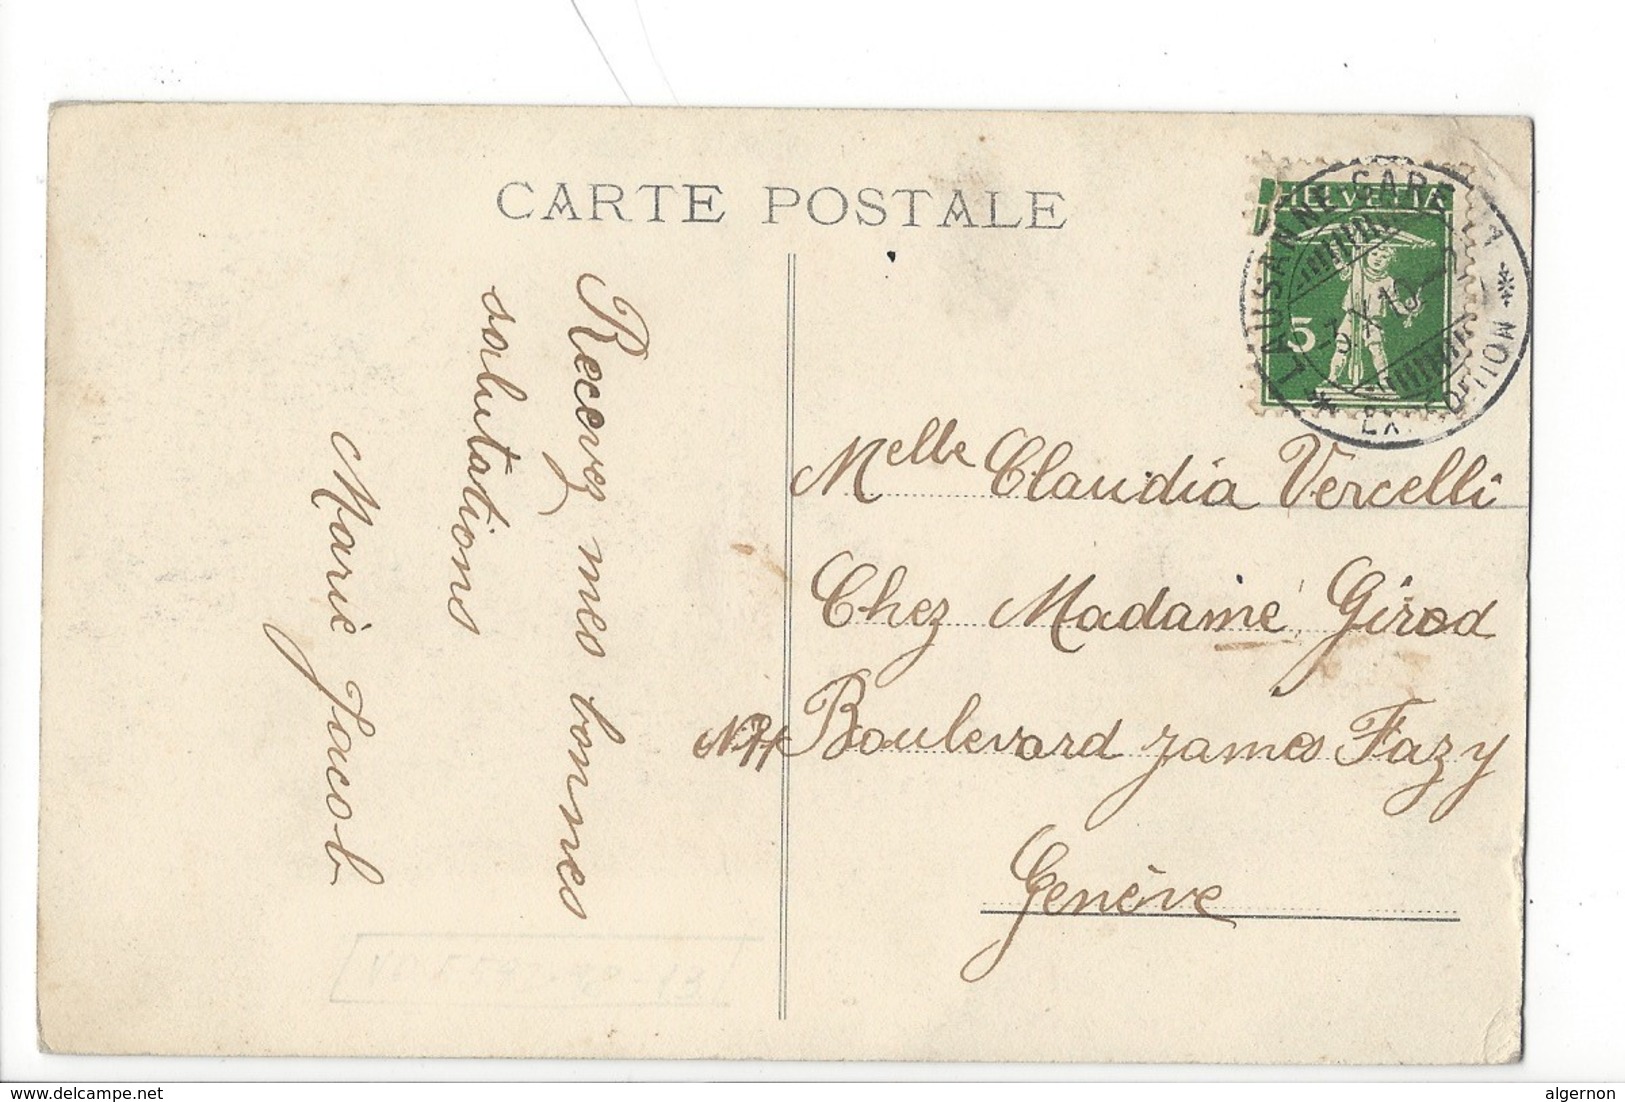 CARTE POSTALE
HELVETIA
5
LAUSANNE GARE A
EXPEDITION
3 X 10
Recevez mes bonnes
salutations
Marie Jacob
Melle Claudia Vercelli
Chez Madame Girod
Boulevard James Fazy
Genève
www.delcampe.net
algernon